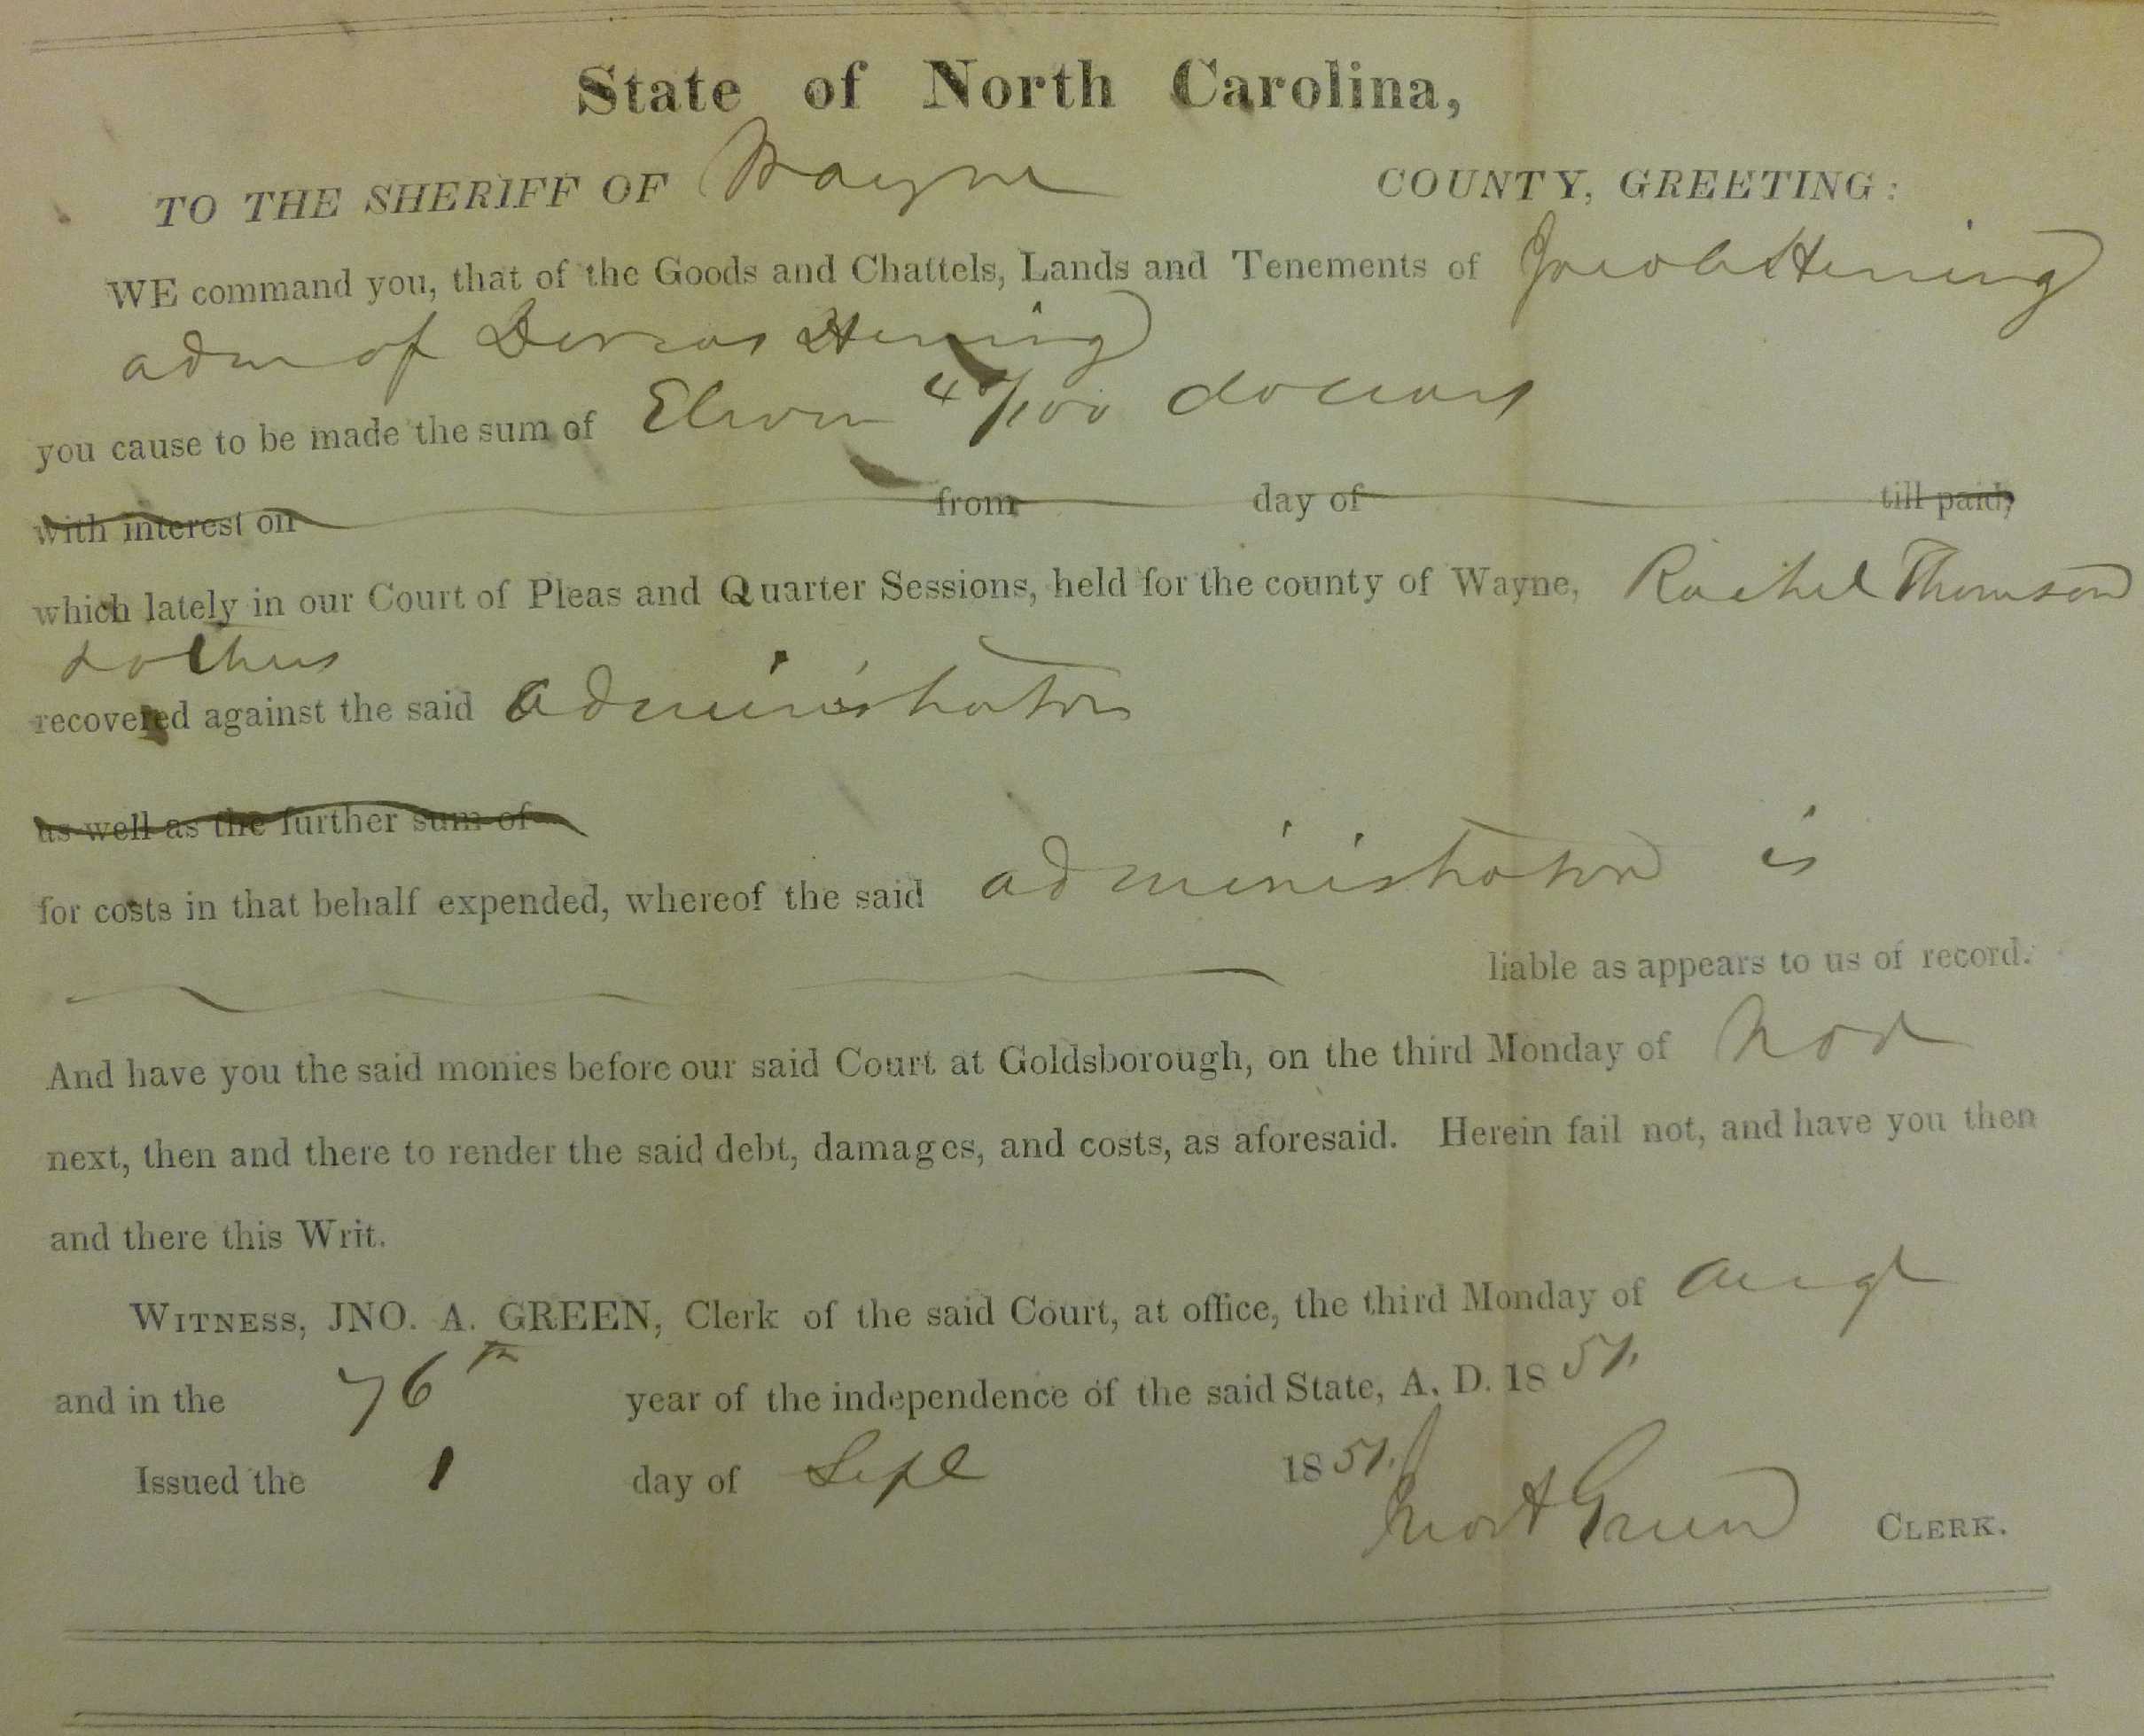 State of North Carolina,
TO THE SHERIFF OF Wayne COUNTY, GREETING:
WE command you, that of the Goods and Chattels, Lands and Tenements of Jacob Herring
adm of Dorcas Herring
you cause to be made the sum of Eleven 40/100 dollars
with interest on from day of till paid,
which lately in our Court of Pleas and Quarter Sessions, held for the county of Wayne, Rachel Thomson
& others
recovered against the said administrator
as well as the further sum of
for costs in that behalf expended, whereof the said administrator is
liable as appears to us of record.
And have you the said monies before our said Court at Goldsborough, on the third Monday of Nov
next, then and there to render the said debt, damages, and costs, as aforesaid. Herein fail not, and have you then
and there this Writ.
WITNESS, JNO. A. GREEN, Clerk of the said Court, at office, the third Monday of Augt
and in the 76th year of the independence of the said State, A. D. 1851.
Issued the 1 day of Sept 1851. Jno A Green CLERK.